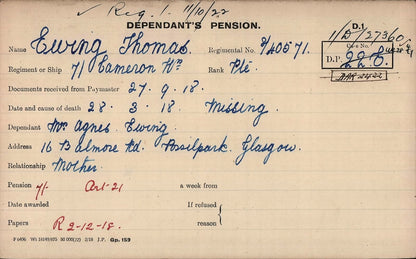 ✓ Reg. 1. 11/10/22
DEPENDANT'S PENSION.
D.1
1/D/27360/
Name Ewing Thomas. Regimental No. 3/40571.
Case No.
D.P. 22.E.
Regiment or Ship 7/ Cameron Hrs Rank Pte.
Documents received from Paymaster 27. 9. 18.
Date and cause of death 28. 3. 18 Missing
Dependant Mrs Agnes Ewing.
Address 16 Balmore Rd. Possilpark. Glasgow.
Relationship Mother.
Pension Art-21 a week from
Date awarded If refused
Papers R 2-12-18. reason
Gp. 159